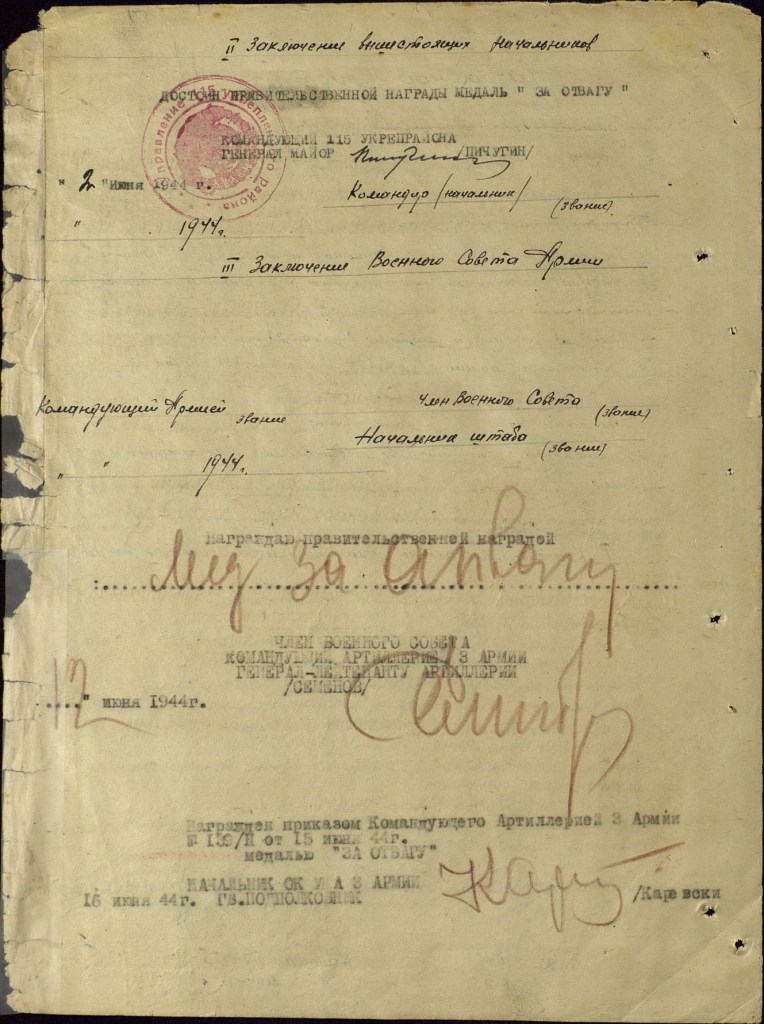 II Заключение вышестоящих Начальников
ДОСТОИН ПРАВИТЕЛЬСТВЕННОЙ НАГРАДЫ МЕДАЛЬ " ЗА ОТВАГУ "
Управление 115 Укрепленного района
КОМАНДУЮЩИЙ 115 УКРЕПРАЙОНА
ГЕНЕРАЛ МАЙОР /ПИЧУГИН/
" 2 " Июня 1944 г.
Командир /начальник/
(звание)
" 1944г.
III Заключение Военного Совета Армии
Командующий Армией
звание
Член Военного Совета
(звание)
Начальник штаба
(звание)
" " 1944г.
Награждаю правительственной наградой
:.... Мед За Отвагу ....
ЧЛЕН ВОЕННОГО СОВЕТА
КОМАНДУЮЩИЙ АРТИЛЛЕРИЕЙ 3 АРМИИ
ГЕНЕРАЛ-ЛЕЙТЕНАНТ АРТИЛЛЕРИИ
/СЕМЕНОВ/
12 " июня 1944г.
Награжден приказом Командующего Артиллерией 3 Армии
№ 139/Н от 15 июня 44г.
медалью "ЗА ОТВАГУ"
НАЧАЛЬНИК ОК УКА 3 АРМИИ
16 июня 44г. ГВ.ПОДПОЛКОВНИК /Каревски